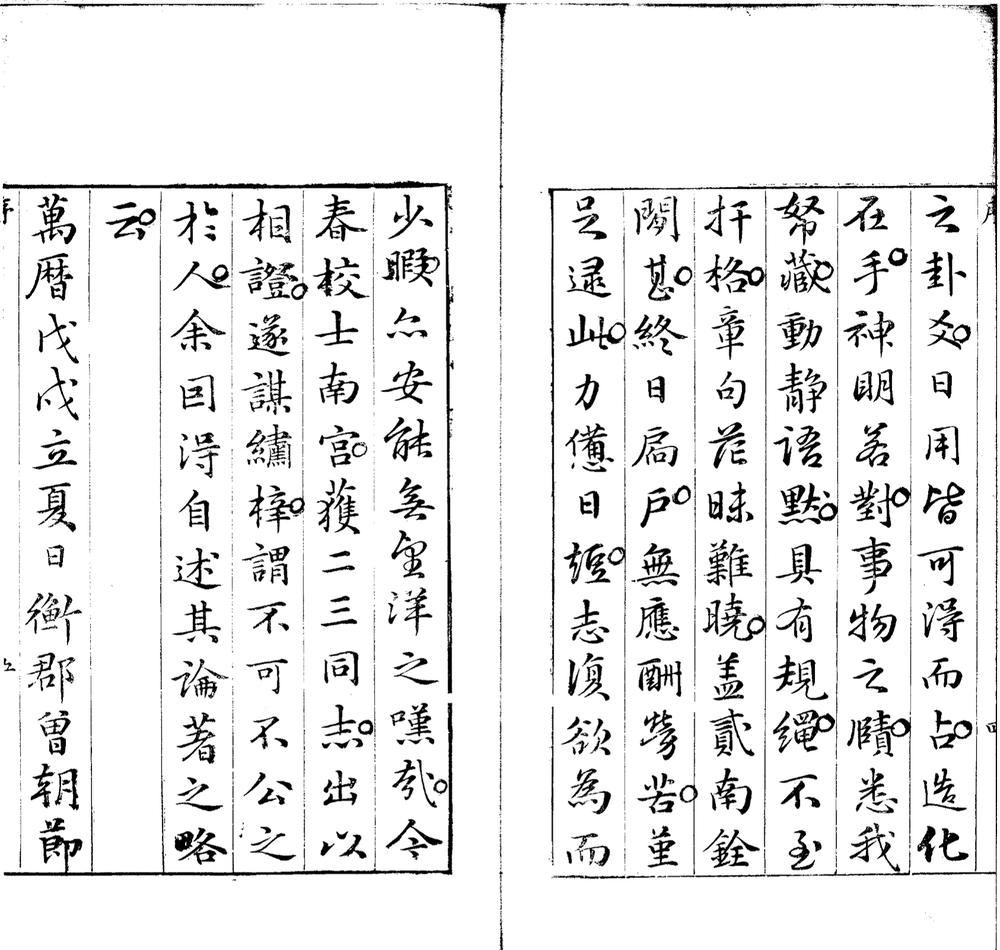 之卦爻日用皆可淂而占造化
在手神明若對事物之賾悉我
帑藏動静語默具有規繩不至
扞格章句茫昧難曉盖貳南銓
閴甚終日扃戶無應酬勞苦堇
足逮此力億日短志復欲為而
少暇亦安能無望洋之嘆㢤今
春校士南宫獲二三同志出以
相證遂謀繡梓謂不可不公之
於人余因淂自述其論著之略
云
萬曆戊戌立夏日衡郡曾朝節